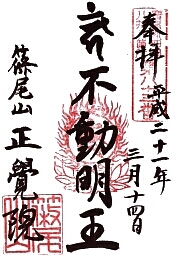 奉拝
平成二十一年
三月十四日
不動明王
篠尾山
正覺院